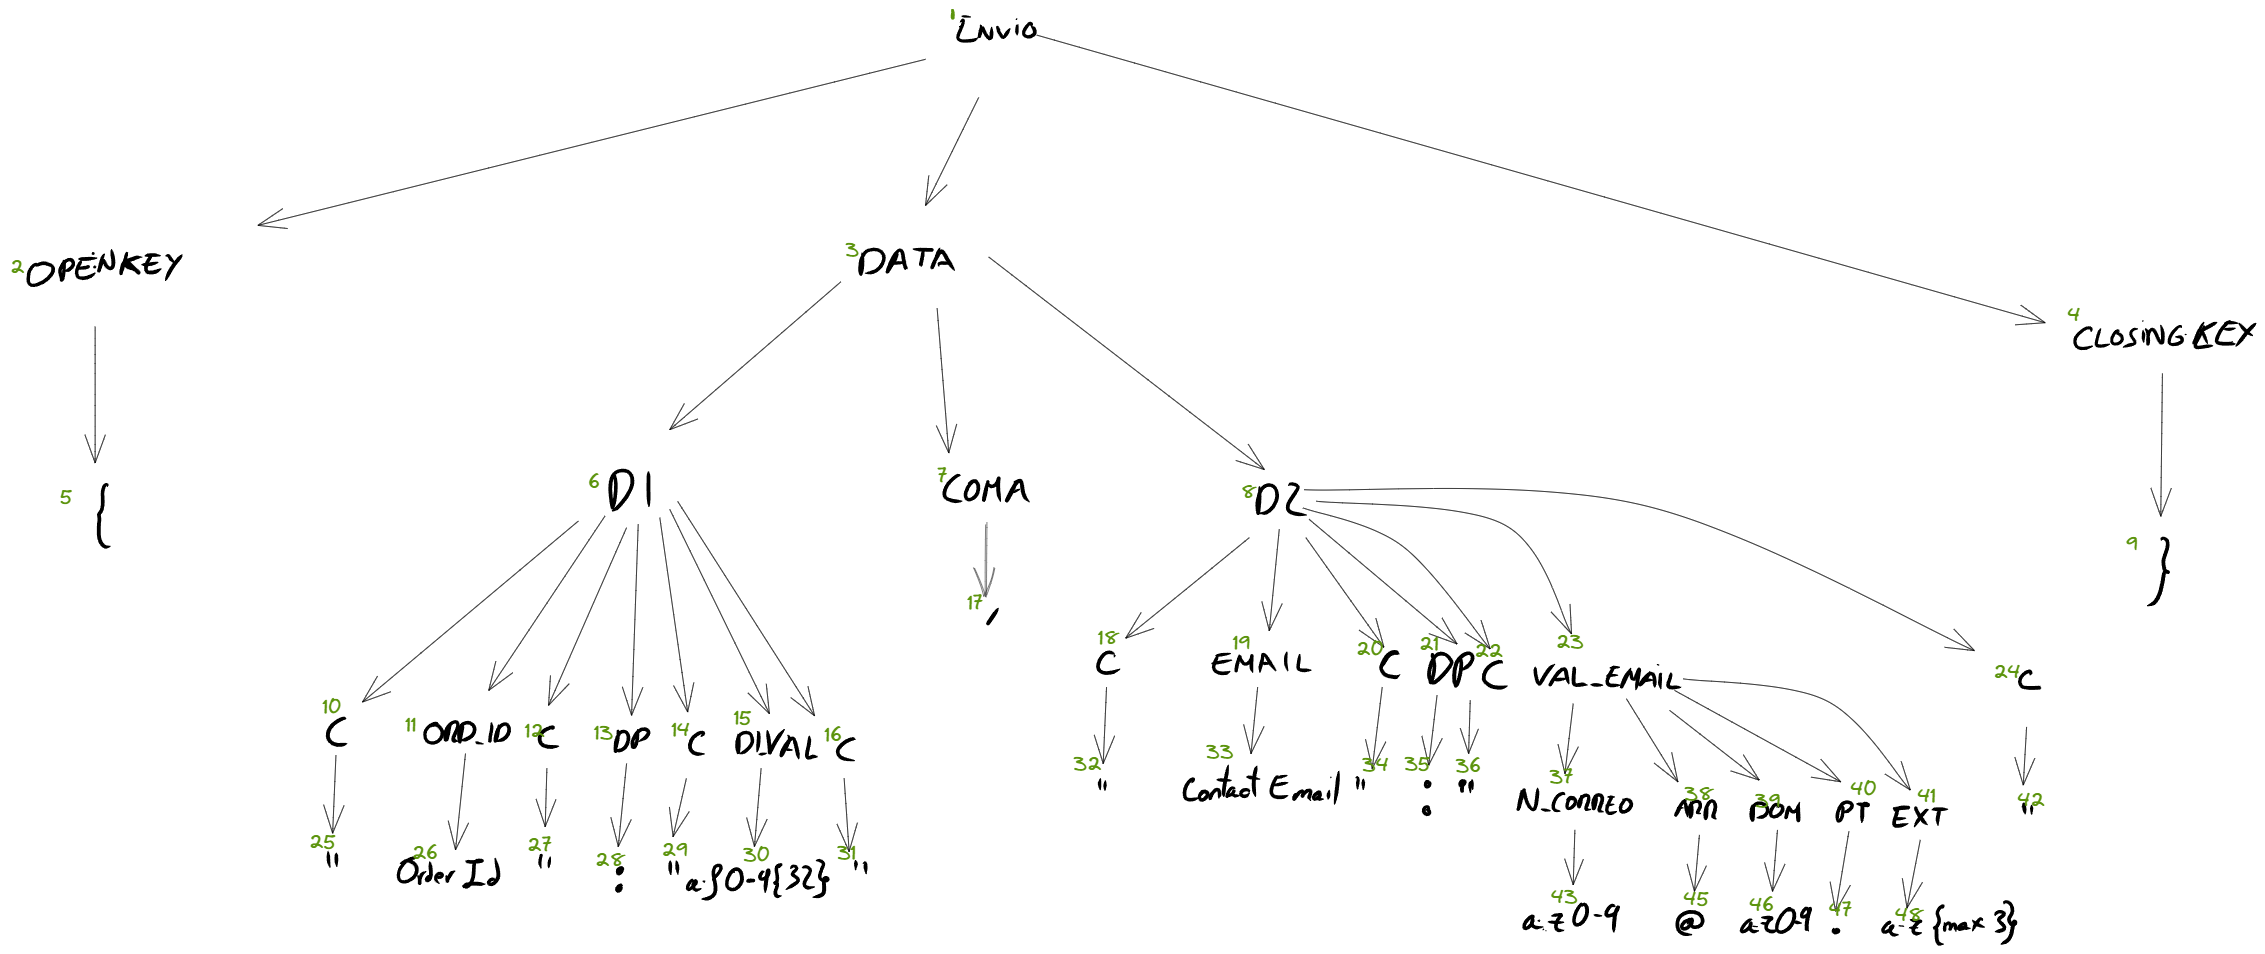 1 Envio
2 OPENKEY
3 DATA
4 CLOSINGKEY
5 {
6 D1
7 COMA
8 D2
9 }
10 C
11 ORD_ID
12 C
13 DP
14 C
15 D1VAL
16 C
17 ,
18 C
19 EMAIL
20 C
21 DP
22 C
23 VAL_EMAIL
24 C
25 "
26 Order Id
27 "
28 :
29 "
30 a-z0-9{32}
31 "
32 "
33 Contact Email
34 "
35 :
36 "
37 N_CORREO
38 ARR
39 DOM
40 PT
41 EXT
42 "
43 a-z0-9
45 @
46 a-z09
47 .
48 a-z{max 3}